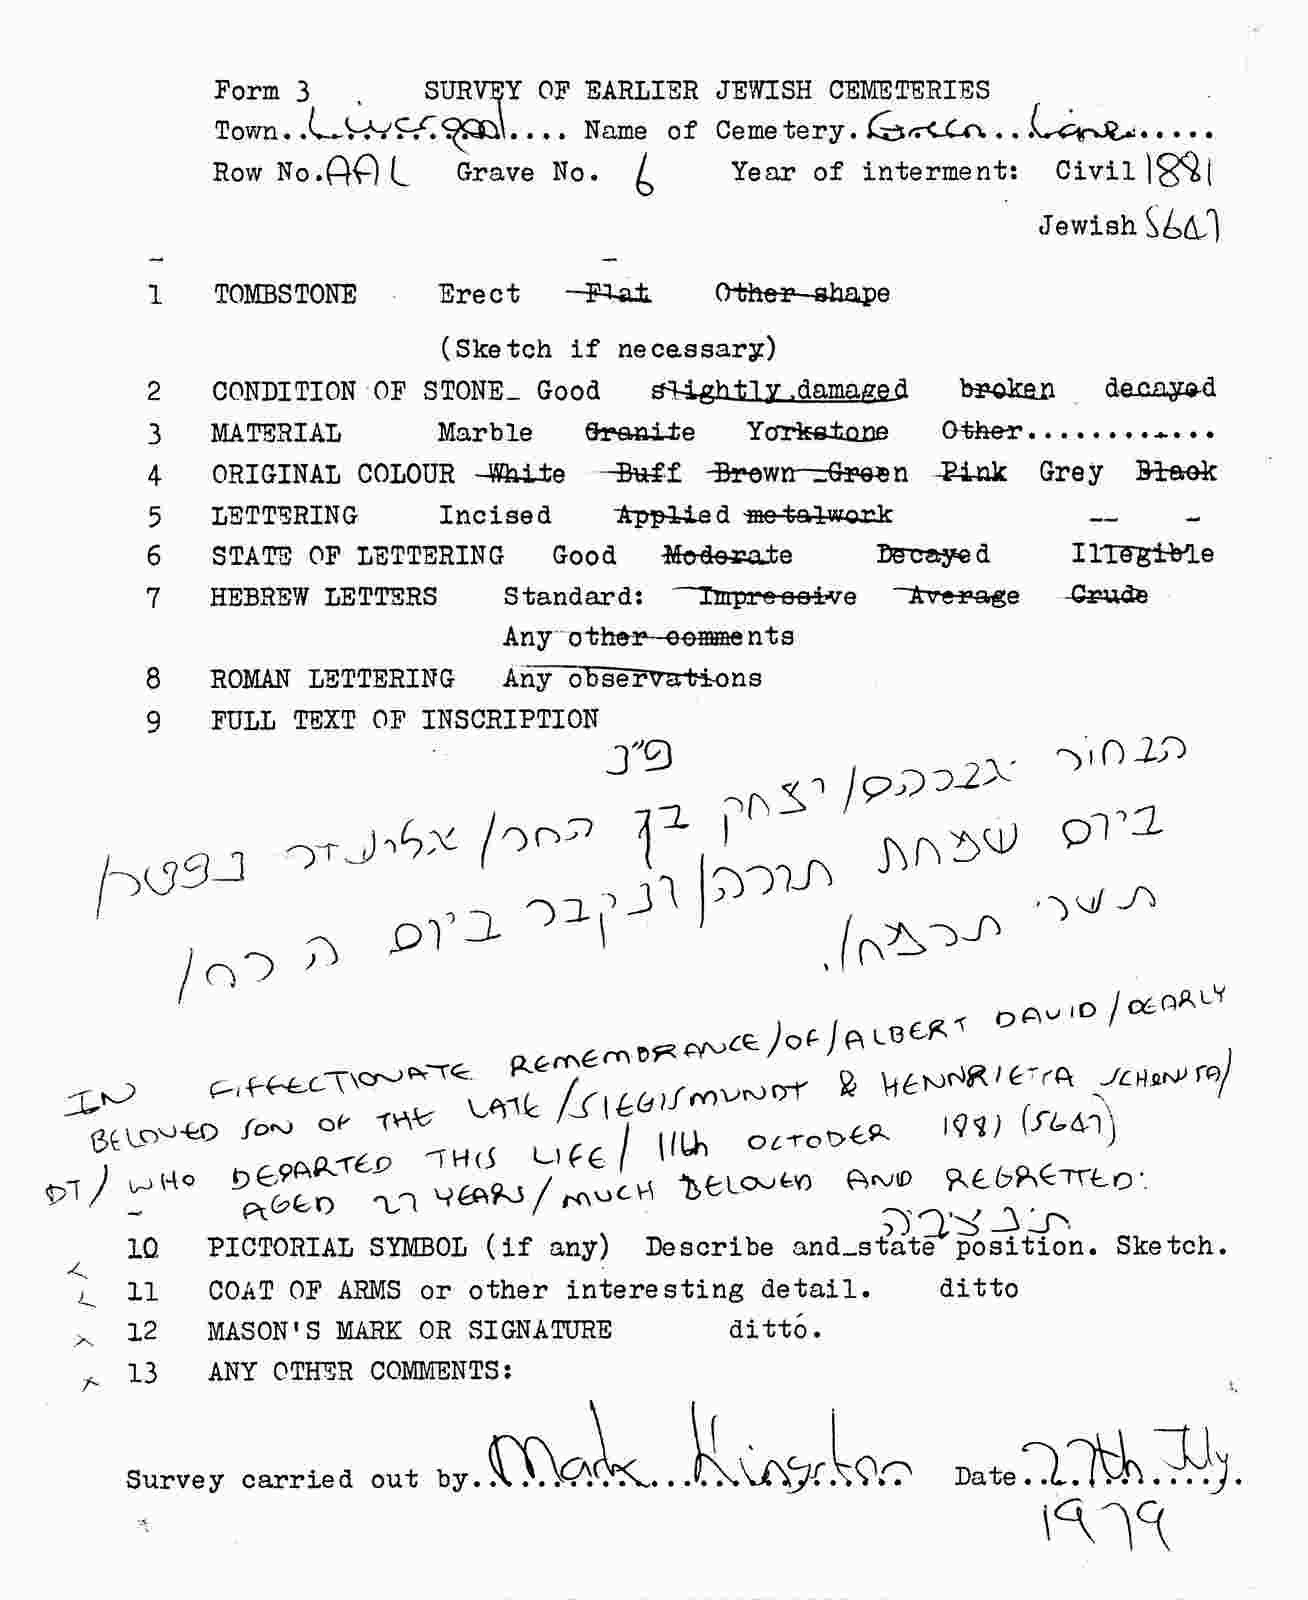 Form 3 SURVEY OF EARLIER JEWISH CEMETERIES
Town..Liverpool.... Name of Cemetery.Green..Lane......
Row No.AAL Grave No. 6 Year of interment: Civil 1881
Jewish 5647
1 TOMBSTONE Erect Flat Other shape
(Sketch if necessary)
2 CONDITION OF STONE Good slightly damaged broken decayed
3 MATERIAL Marble Granite Yorkstone Other............
4 ORIGINAL COLOUR White Buff Brown Green Pink Grey Black
5 LETTERING Incised Applied metalwork
6 STATE OF LETTERING Good Moderate Decayed Illegible
7 HEBREW LETTERS Standard: Impressive Average Crude
Any other comments
8 ROMAN LETTERING Any observations
9 FULL TEXT OF INSCRIPTION
פ״נ
הבחור אברהם/יצחק בן החר/אליעזר נפטר/
ביום שמחת תורה/ונקבר ביום ה כח/
תשרי תרמח/.
IN AFFECTIONATE REMEMBRANCE/OF/ALBERT DAVID/DEARLY
BELOVED SON OF THE LATE/SIEGISMUNDT & HENNRIETTA
DT/WHO DEPARTED THIS LIFE/11th OCTOBER 1881 (5647)
AGED 27 YEARS/MUCH BELOVED AND REGRETTED:
תנצביה
10 PICTORIAL SYMBOL (if any) Describe and state position. Sketch.
11 COAT OF ARMS or other interesting detail. ditto
12 MASON'S MARK OR SIGNATURE ditto.
13 ANY OTHER COMMENTS:
Survey carried out by..Mark Kingston Date..27th July.
1979